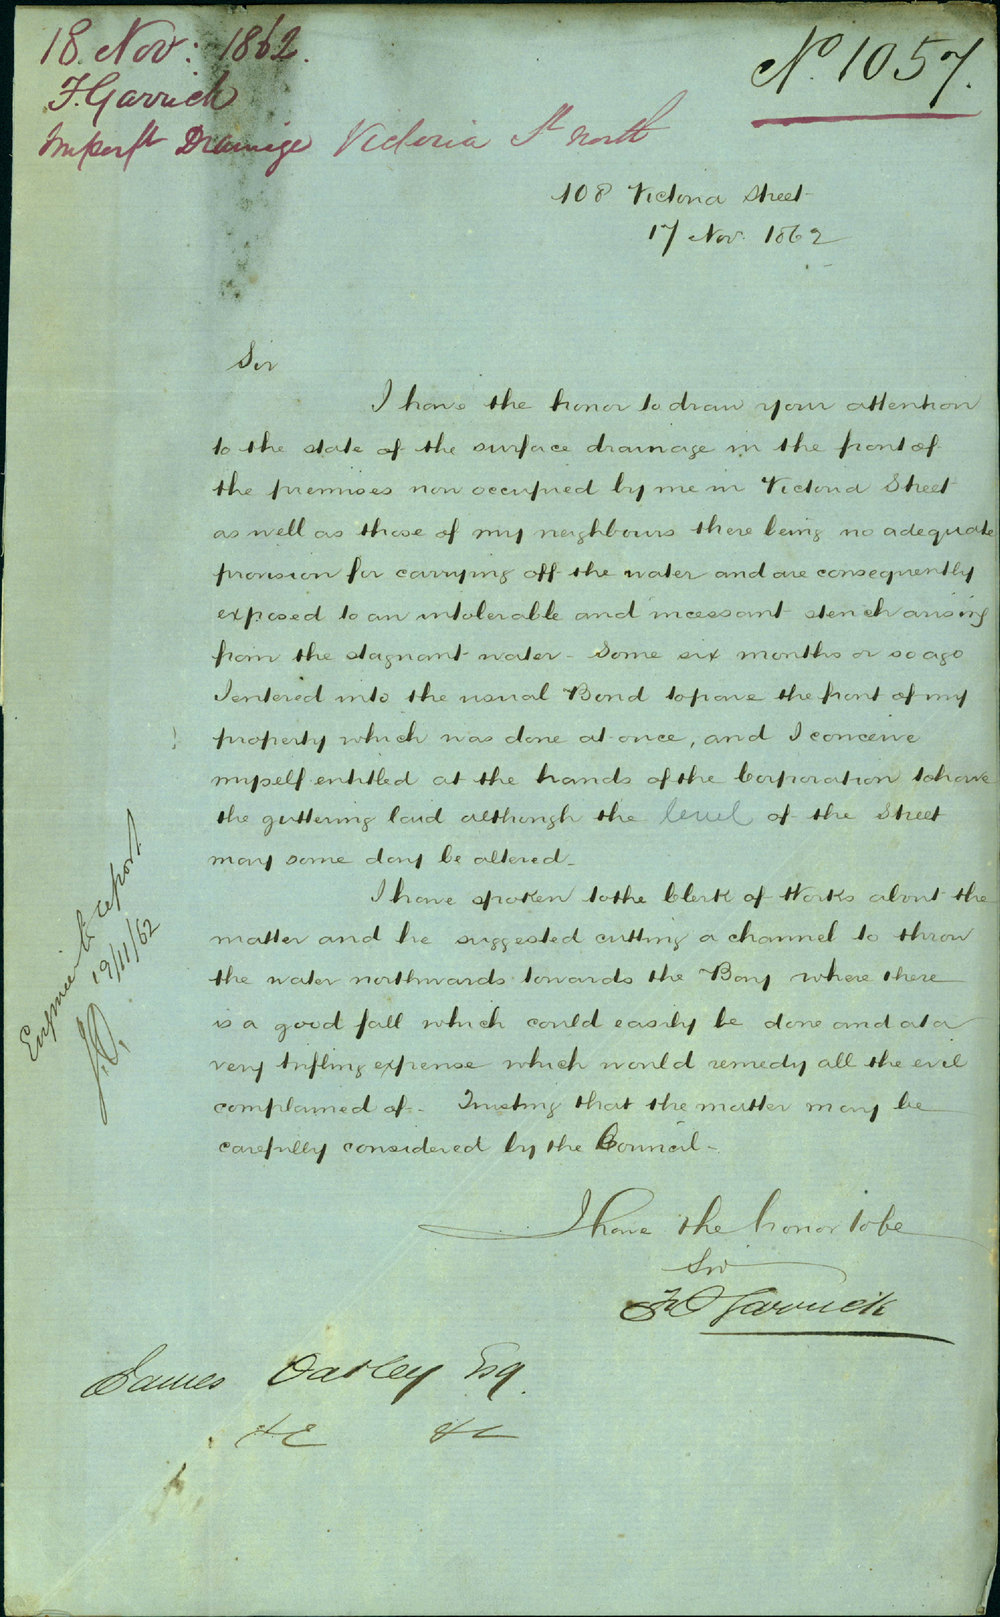 18 Nov: 1862.
F. Garrick
Imperft Drainage Victoria St North
No. 1057.
108 Victoria Street
17 Nov. 1862
Sir
I have the honor to draw your attention
to the state of the surface drainage in the front of
the premises now occupied by me in Victoria Street
as well as those of my neighbours there being no adequate
provision for carrying off the water and are consequently
exposed to an intolerable and incessant stench arising
from the stagnant water - Some six months or so ago
I entered into the usual Bond to pave the front of my
property which was done at once, and I conceive
myself entitled at the hands of the Corporation to have
the guttering laid although the level of the Street
may some day be altered -
I have spoken to the Clerk of Works about the
matter and he suggested cutting a channel to throw
the water northwards towards the Bay where there
is a good fall which could easily be done and at a
very trifling expense which would remedy all the evil
complained of - Trusting that the matter may be
carefully considered by the Council -
I have the honor to be
Sir
Garrick
James Oatley Esq.
&c &c
Engineer to report
19/11/62
J.O.